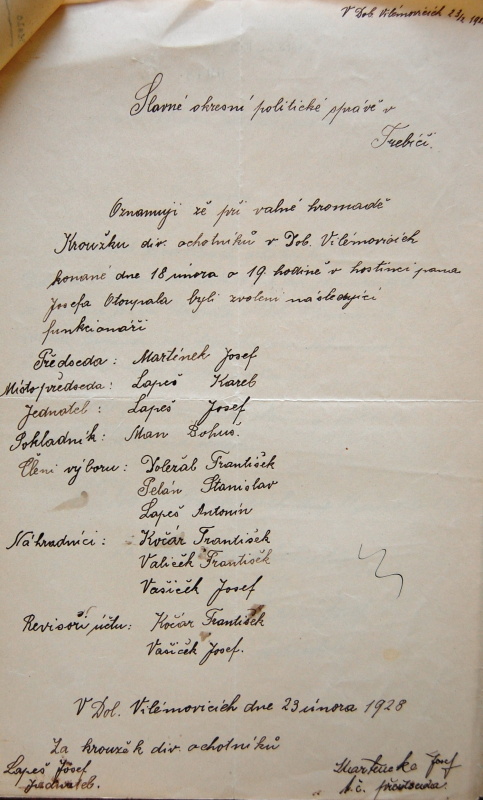 V Dob. Vilémovicích 23/2 192
Slavné okresní politické správě v
Třebíči.
Oznamuji zě při valné hromadě
Kroužku div. ochotníků v Dob. Vilémovicích
konané dne 18 února o 19 hodině v hostinci pana
Josefa Otoupala byli zvoleni následující
funkcionáři
Předseda: Martínek Josef
Místopředseda: Lapeš Karel
Jednatel: Lapeš Josef
Pokladník: Man Bohuš.
Členi výboru: Doležal František
Pelán Stanislav
Lapeš Antonín
Náhradníci: Kočár František
Valíček František
Vašíček Josef
Revisoři účtu: Kočár František
Vašíček Josef.
V Dol. Vilémovicích dne 23 února 1928
Za kroužěk div. ochotníků
Lapeš Josef Martínek Josef
Jednatel. t.č. předseda.